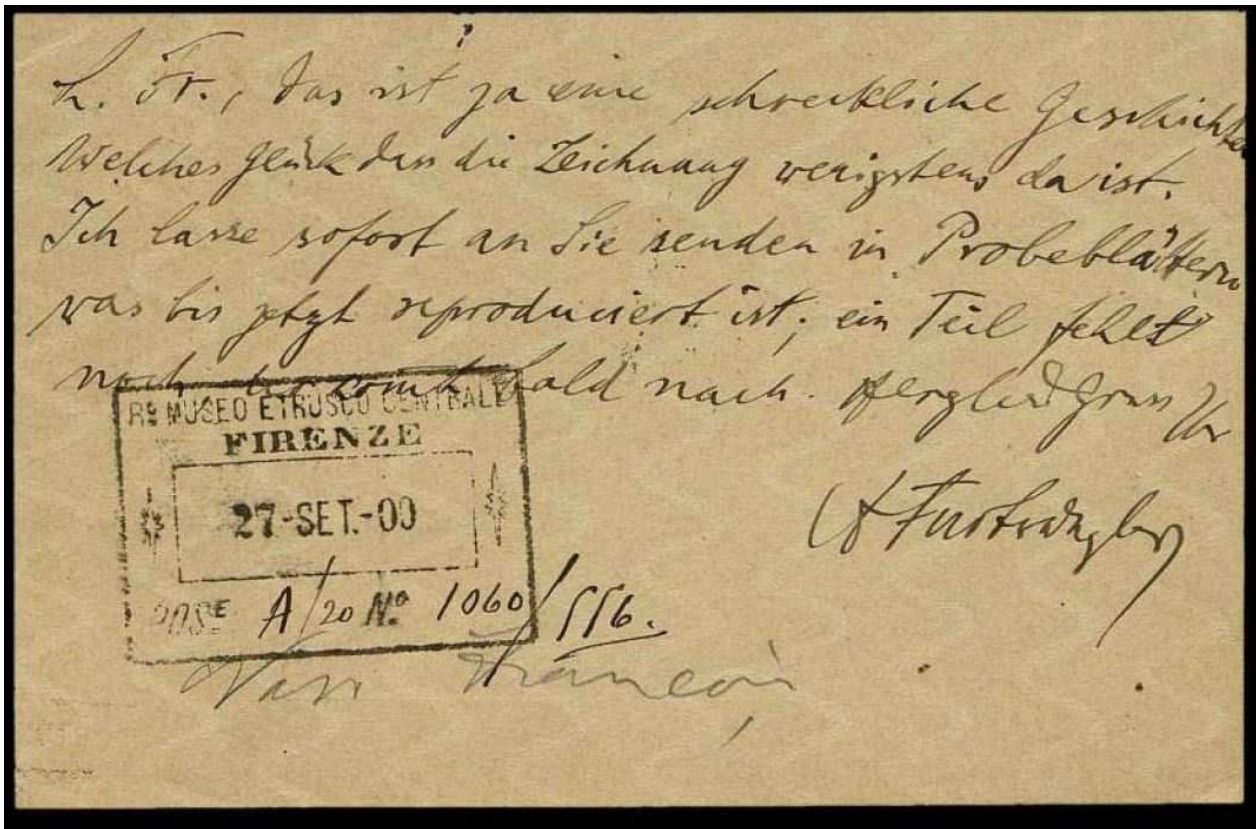 L. Fr., das ist ja eine schreckliche Geschichte
Welches Glück dass die Zeichnung wenigstens da ist.
Ich lasse sofort an Sie senden in Probeblättern
was bis jetzt reproduciert ist; ein Teil fehlt
noch, komt bald nach. Herzlich Gruss Ihr
A Furtwängler
Rº MUSEO ETRUSCO CENTRALE
FIRENZE
27-SET.-00
POSE A/20 Nº 1060/556.
Vaso François